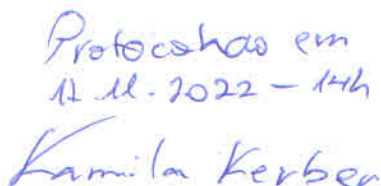 Protocolado em
17.11.2022 – 14h
Kamila Kerber